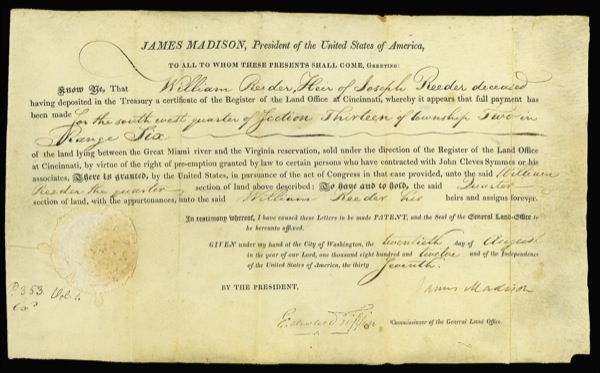 JAMES MADISON, President of the United States of America,
TO ALL TO WHOM THESE PRESENTS SHALL COME, GREETING:
Know Ye, That William Reeder, Heir of Joseph Reeder deceased
having deposited in the Treasury a certificate of the Register of the Land Office at Cincinnati, whereby it appears that full payment has
been made for the south west quarter of Section Thirteen of Township Two in
Range Six
of the land lying between the Great Miami river and the Virginia reservation, sold under the direction of the Register of the Land Office
at Cincinnati, by virtue of the right of pre-emption granted by law to certain persons who have contracted with John Cleves Symmes or his
associates, There is granted, by the United States, in pursuance of the act of Congress in that case provided, unto the said William
Reeder the quarter section of land above described: To have and to hold, the said Quarter
section of land, with the appurtenances, unto the said William Reeder his heirs and assigns forever.
In testimony whereof, I have caused these Letters to be made PATENT, and the Seal of the General Land-Office to
be hereunto affixed.
GIVEN under my hand at the City of Washington, the twentieth day of August
in the year of our Lord, one thousand eight hundred and twelve and of the Independence
of the United States of America, the thirty Seventh.
BY THE PRESIDENT, James Madison
P. 353. Vol.
Edward Tiffin Commissioner of the General Land Office.